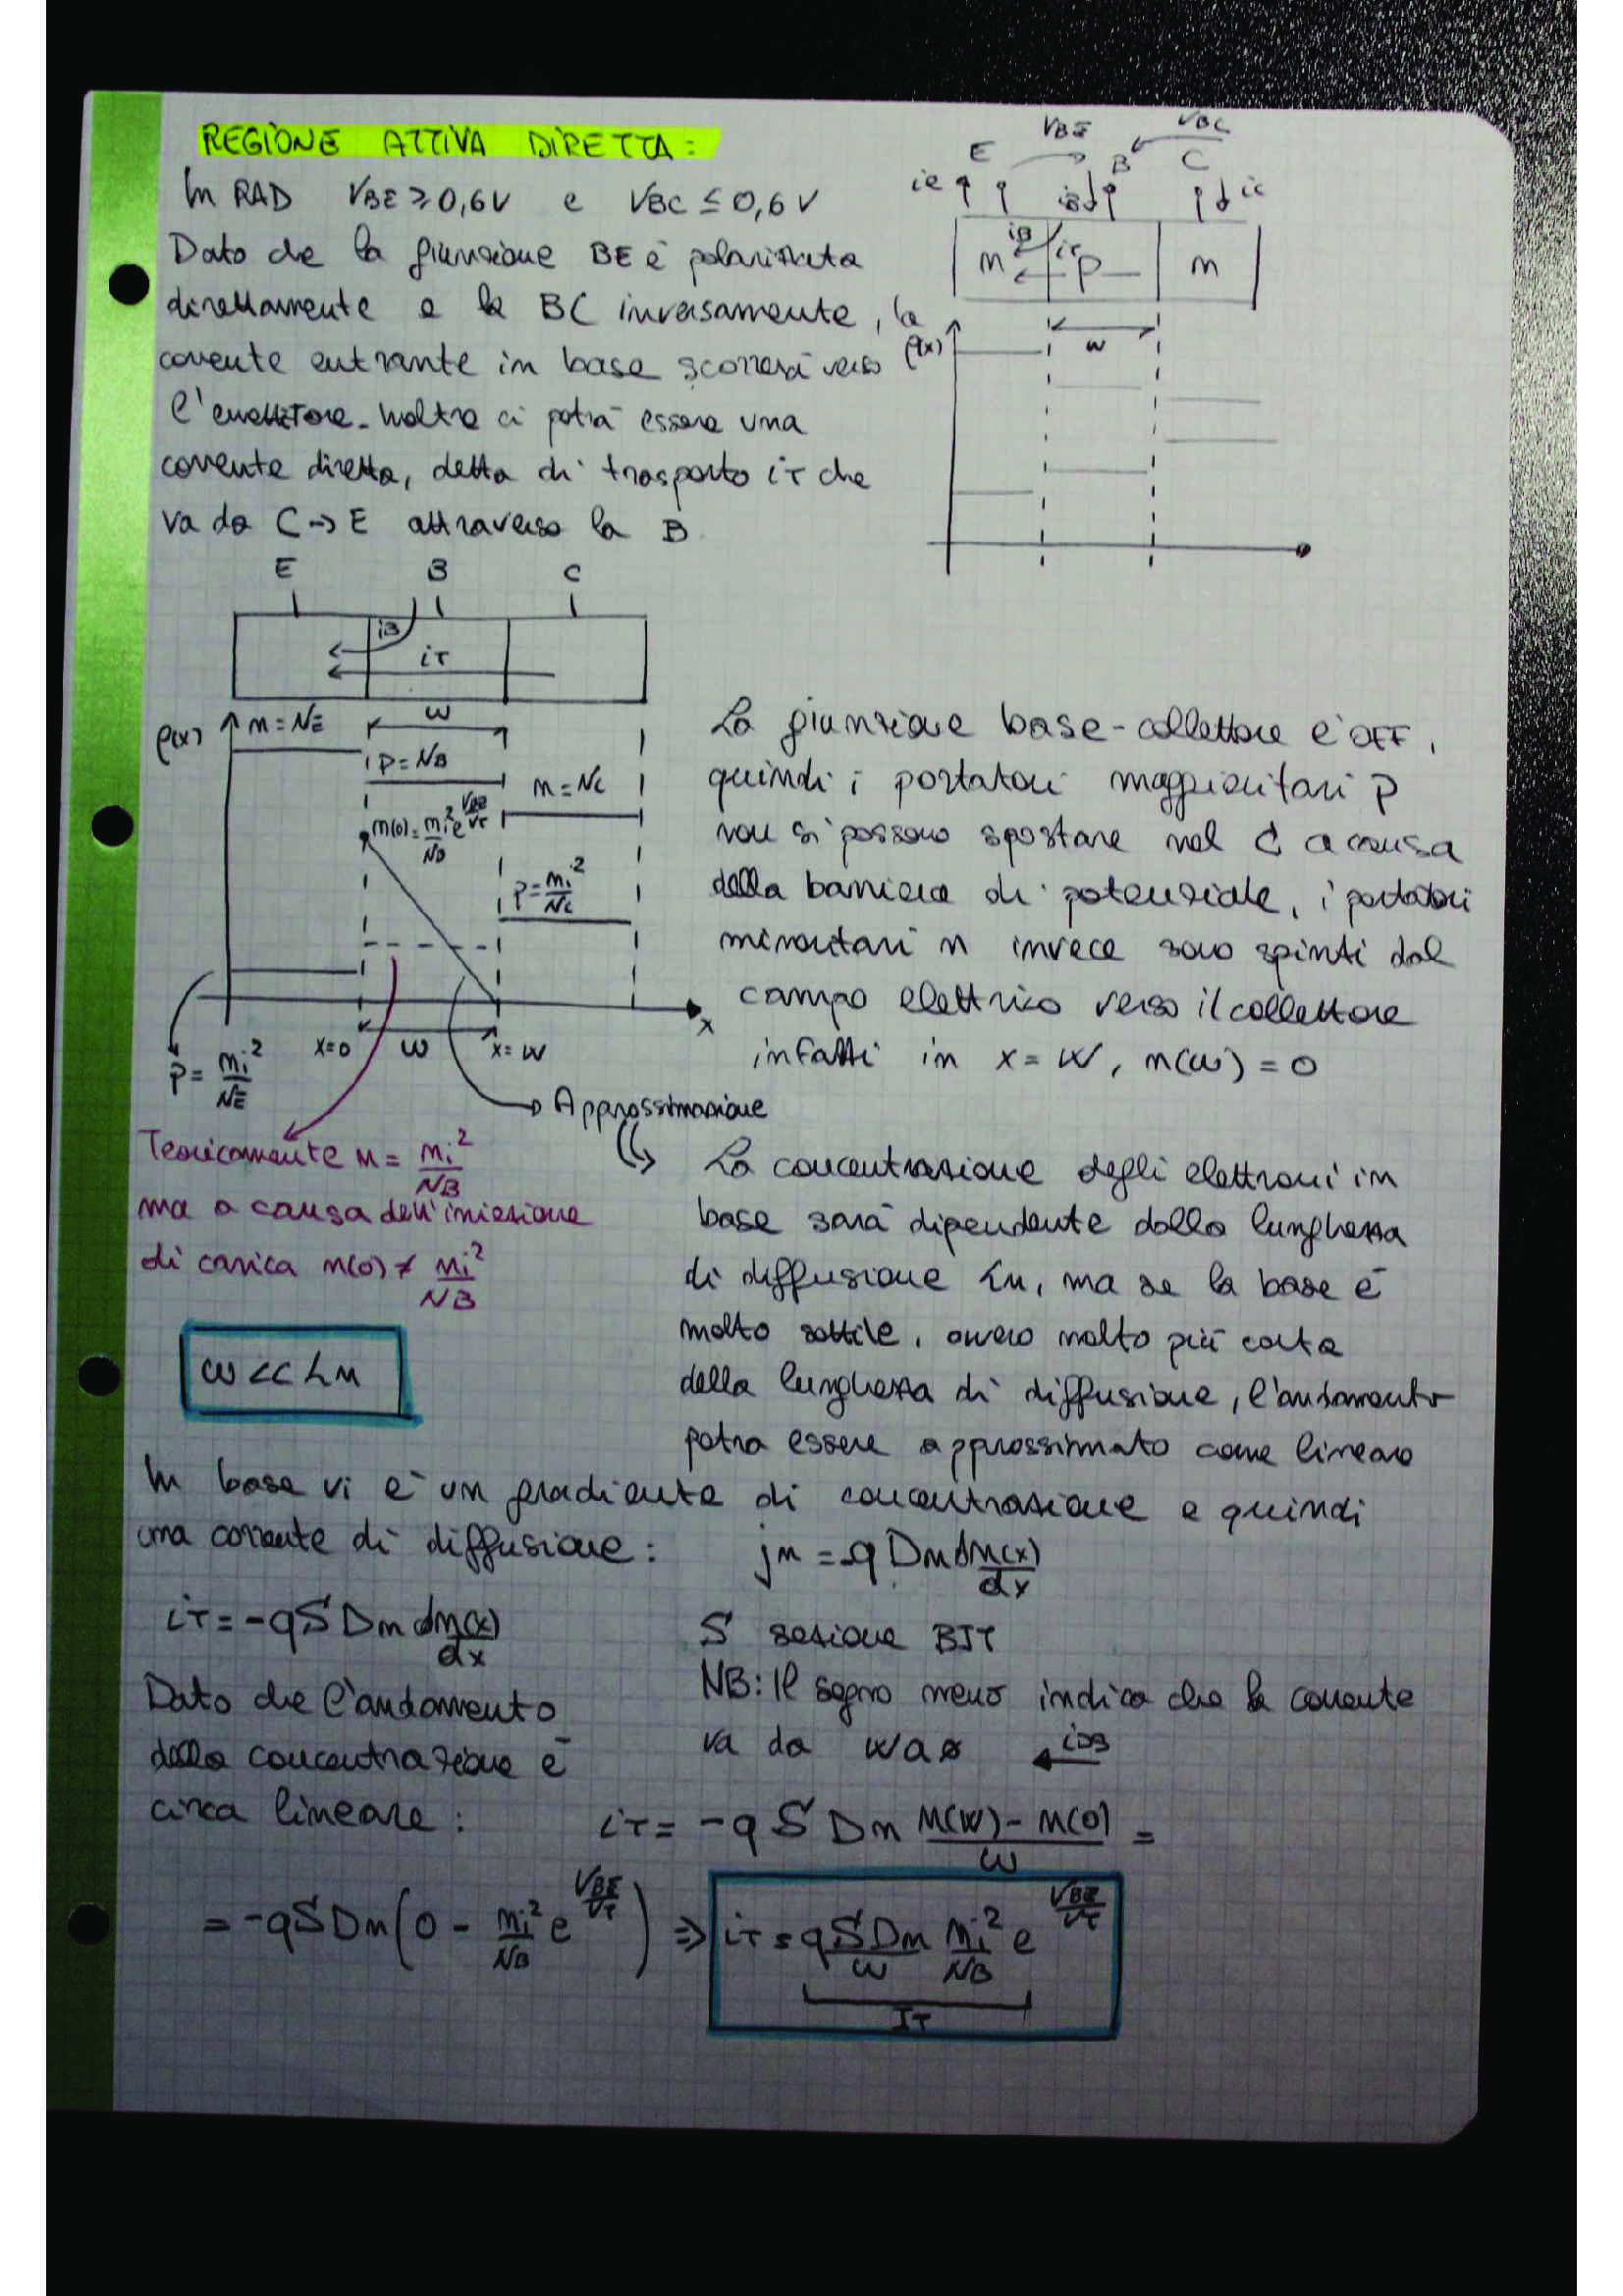 REGIONE ATTIVA DIRETTA:
In RAD VBE ≥ 0,6V e VBC ≤ 0,6V
Dato che la giunzione BE è polarizzata
direttamente e la BC inversamente, la
corrente entrante in base scorrerà verso
l'emettitore. Inoltre ci potrà essere una
corrente diretta, detta di trasporto iT che
va da C → E attraverso la B
VBE VBC
E B C
ie iB ic
iB iT
n p n
ρ(x) w
E B C
iB
iT
ρ(x) n = NE w
p = NB
n = NC
n(0) = ni²/NB e^(VBE/VT)
p = ni²/NC
x
x=0 w x=w
p = ni²/NE
Approssimazione
La giunzione base-collettore è OFF,
quindi i portatori maggioritari p
non si possono spostare nel C a causa
della barriera di potenziale, i portatori
minoritari n invece sono spinti dal
campo elettrico verso il collettore
infatti in x = W, n(w) = 0
Teoricamente n = ni²/NB
ma a causa dell'iniezione
di carica n(0) ≠ ni²/NB
w << Ln
La concentrazione degli elettroni in
base sarà dipendente dalla lunghezza
di diffusione Ln, ma se la base è
molto sottile, ovvero molto più corta
della lunghezza di diffusione, l'andamento
potrà essere approssimato come lineare
In base vi è un gradiente di concentrazione e quindi
una corrente di diffusione: jn = -q Dn dn(x)/dx
iT = -qS Dn dn(x)/dx
S sezione BJT
NB: Il segno meno indica che la corrente
va da w a 0
Dato che l'andamento
della concentrazione è
circa lineare: iT = -q S Dn (n(W) - n(0))/w =
= -qSDn(0 - ni²/NB e^(VBE/VT)) ⇒ iT = qSDn/w ni²/NB e^(VBE/VT)
IT